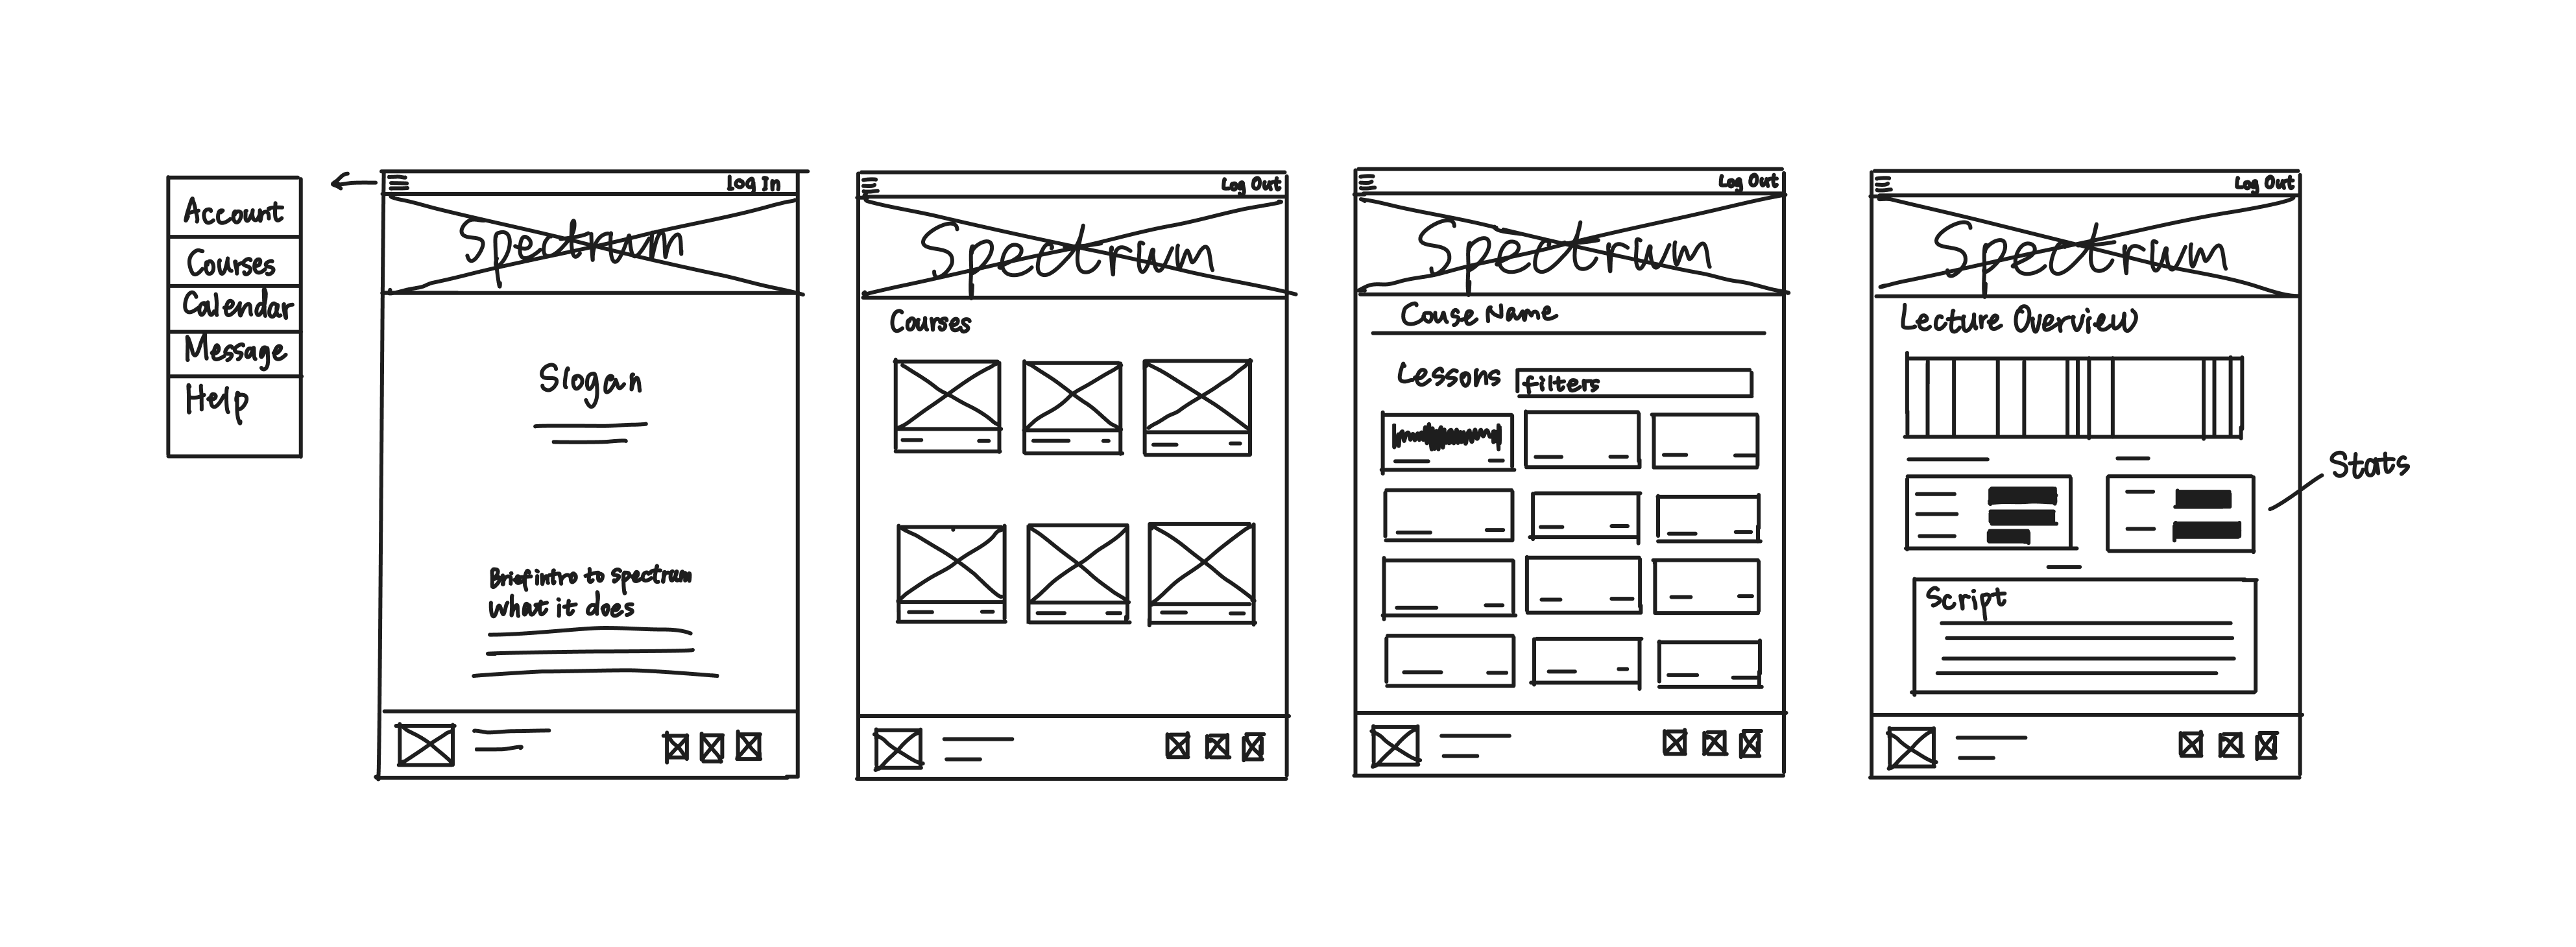 Account
Courses
Calendar
Message
Help
Log In
Spectrum
Slogan
Brief intro to spectrum
what it does
Log Out
Spectrum
Courses
Log Out
Spectrum
Couse Name
Lessons
filters
Log Out
Spectrum
Lecture Overview
Stats
Script